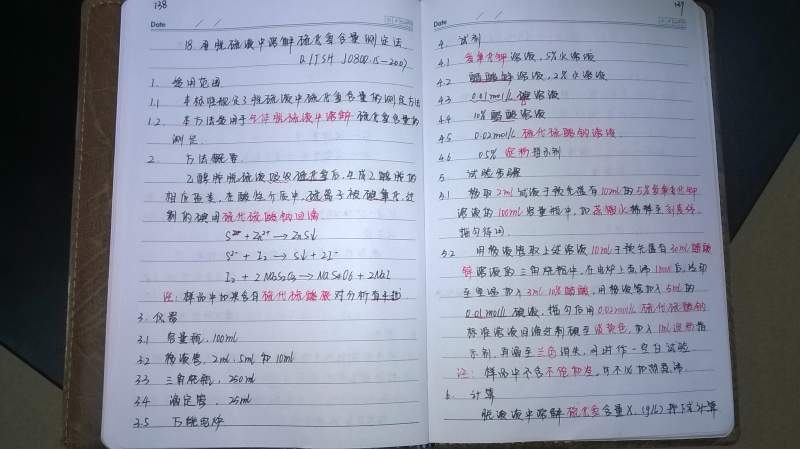 138
Date
18. 再脱硫液中溶解硫化氢含量测定法
Q/TSH J0800.15-2007
1. 适用范围
1.1 本标准规定了脱硫液中硫化氢含量的测定方法
1.2 本方法适用于气体脱硫液中溶解硫化氢含量的
测定.
2. 方法概要
乙醇胺脱硫液吸收硫化氢后,生成乙醇胺的
相应盐类,在酸性介质中,硫离子被碘氧化,过
剩的碘用硫代硫酸钠回滴
S²⁻ + Zn²⁺ → ZnS↓
S²⁻ + I₂ → S↓ + 2I⁻
I₂ + 2Na₂S₂O₃ → Na₂S₄O₆ + 2NaI
注:样品中如果含有硫代硫酸根对分析有干扰
3. 仪器
3.1 容量瓶,100ml
3.2 移液管,2ml.5ml和10ml
3.3 三角烧瓶,250ml
3.4 滴定管,25ml
3.5 万能电炉
139
Date
4. 试剂
4.1 溶液,5%水溶液
4.2 醋酸锌溶液,2%水溶液
4.3 0.01mol/L碘溶液
4.4 10%醋酸溶液
4.5 0.02mol/L硫代硫酸钠溶液
4.6 0.5%淀粉指示剂
5. 试验步骤
5.1 移取2ml试液于预先盛有10ml的5%
溶液的100ml容量瓶中,加蒸馏水稀释至刻度线,
摇匀待用
5.2 用移液管取上述溶液10ml于预先盛有30ml醋酸
锌溶液的三角烧瓶中,在电炉上煮沸1min后,冷却
至室温加入3ml 10%醋酸,用移液管加入5ml的
0.01mol/L碘液,摇匀后用0.02mol/L硫代硫酸钠
标准溶液回滴定剩碘至淡黄色,加入1ml淀粉指
示剂,再滴至兰色消失,同时作一空白试验
注:样品中不含不饱和烃,可不必加热煮沸
6. 计算
脱硫液中溶解硫化氢含量X,(g/L)按下式计算